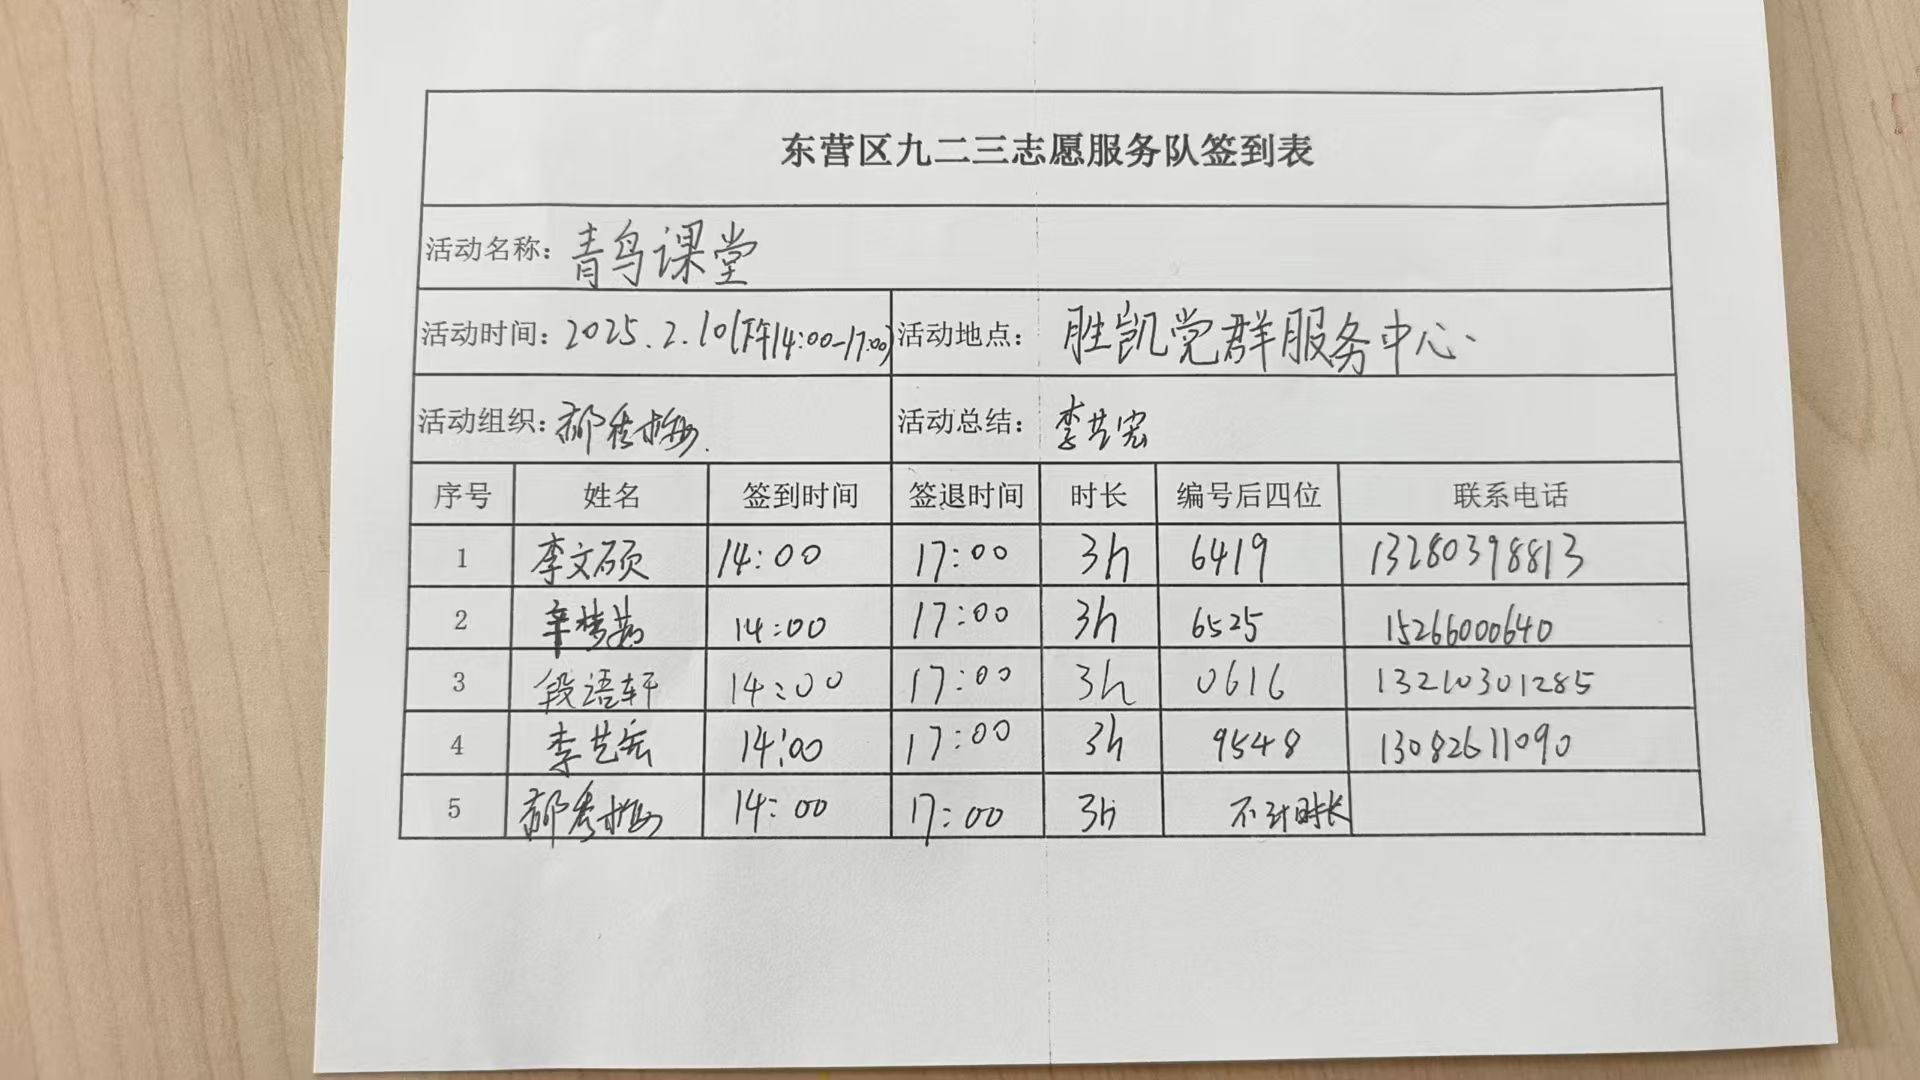 东营区九二三志愿服务队签到表
活动名称：青鸟课堂
活动时间：2025.2.10(下午14:00-17:00) 活动地点：胜凯党群服务中心.
活动组织：郝秀梅. 活动总结：李艺宏
序号 姓名 签到时间 签退时间 时长 编号后四位 联系电话
1 李文硕 14:00 17:00 3h 6419 13280398813
2 辛梦茹 14:00 17:00 3h 6525 15266000640
3 段语轩 14:00 17:00 3h 0616 13210301285
4 李艺宏 14:00 17:00 3h 9548 13082611090
5 郝秀梅 14:00 17:00 3h 不计时长